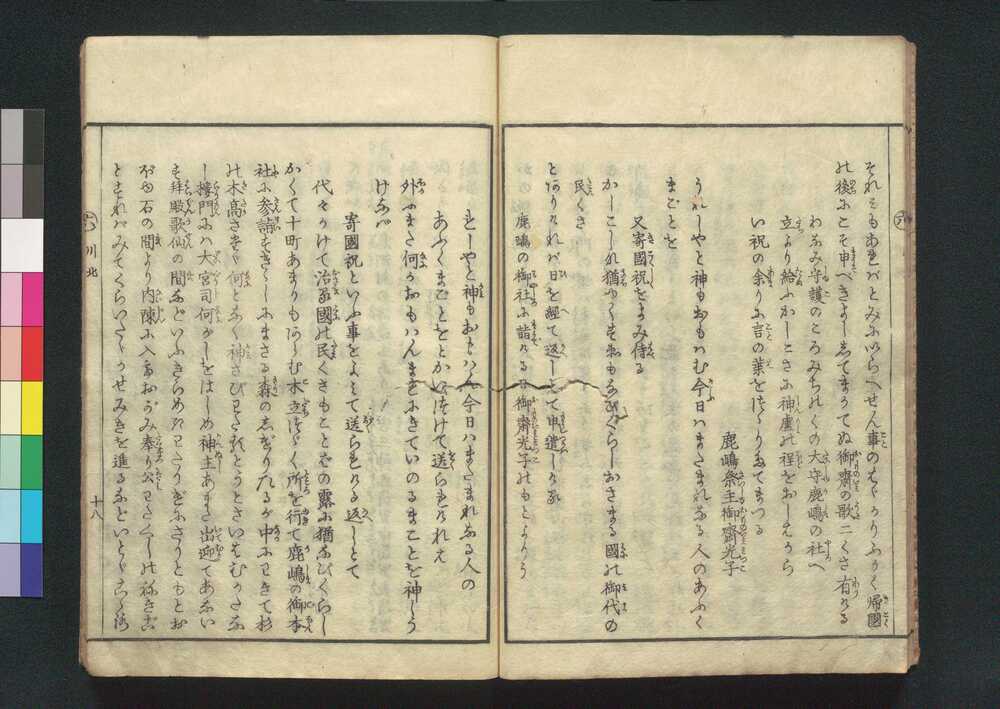 それそもあればとみにいらへせん事のはゞかりふかく帰國
の後にこそ申べきよしをしてまかてぬ御齋の歌二くさ有ける
わがみ守護のころみちのくの大守鹿嶋の社へ
立より給ふかしこさに神慮の程をおしはから
い祝の余りに言の葉をつゞりたてまつる
鹿嶋祭主御齋光子
うれしやと神もおもはむ今日はまたまれなる人のあふく
まことを
又寄國祝をよみ侍る
かしこしな猶ゆくすゑもなびくらしおさまる國の御代の
民くさ
とありければ日を経て返しとて申遣しける
鹿嶋の御社に詣ける日御齋光子のもとより
うれしやと神もおもはん今日はまたまれなる人の
あふくまことをとかいつけて送られけれは
外にまた何かおもはんますにきていのるまことを神しう
けなば
寄國祝といふ事をよみて送られける返しとて
代々かけて治る國の民くさもことばの露に猶なびくらし
かくて十町あまりもあらむ木立つゞく所を行て鹿嶋の御本
社に参詣すきゝしにまさる森のしげりたるが中にわきて杉
の木高さなど何となく神さびわたりたるとうとさいはむかたな
し楼門には大宮司何がしをはじめ神主あまた出迎てあない
す拝殿歌仙の間などいふきらめきわたりぎにさりともとお
ぼゆ石の間より内陳に入ておがみ奉り公わたくしのねぎごと
とすればみてぐらいたゞかせみきを進るなどいとゞこゝろ
六 川北
十八